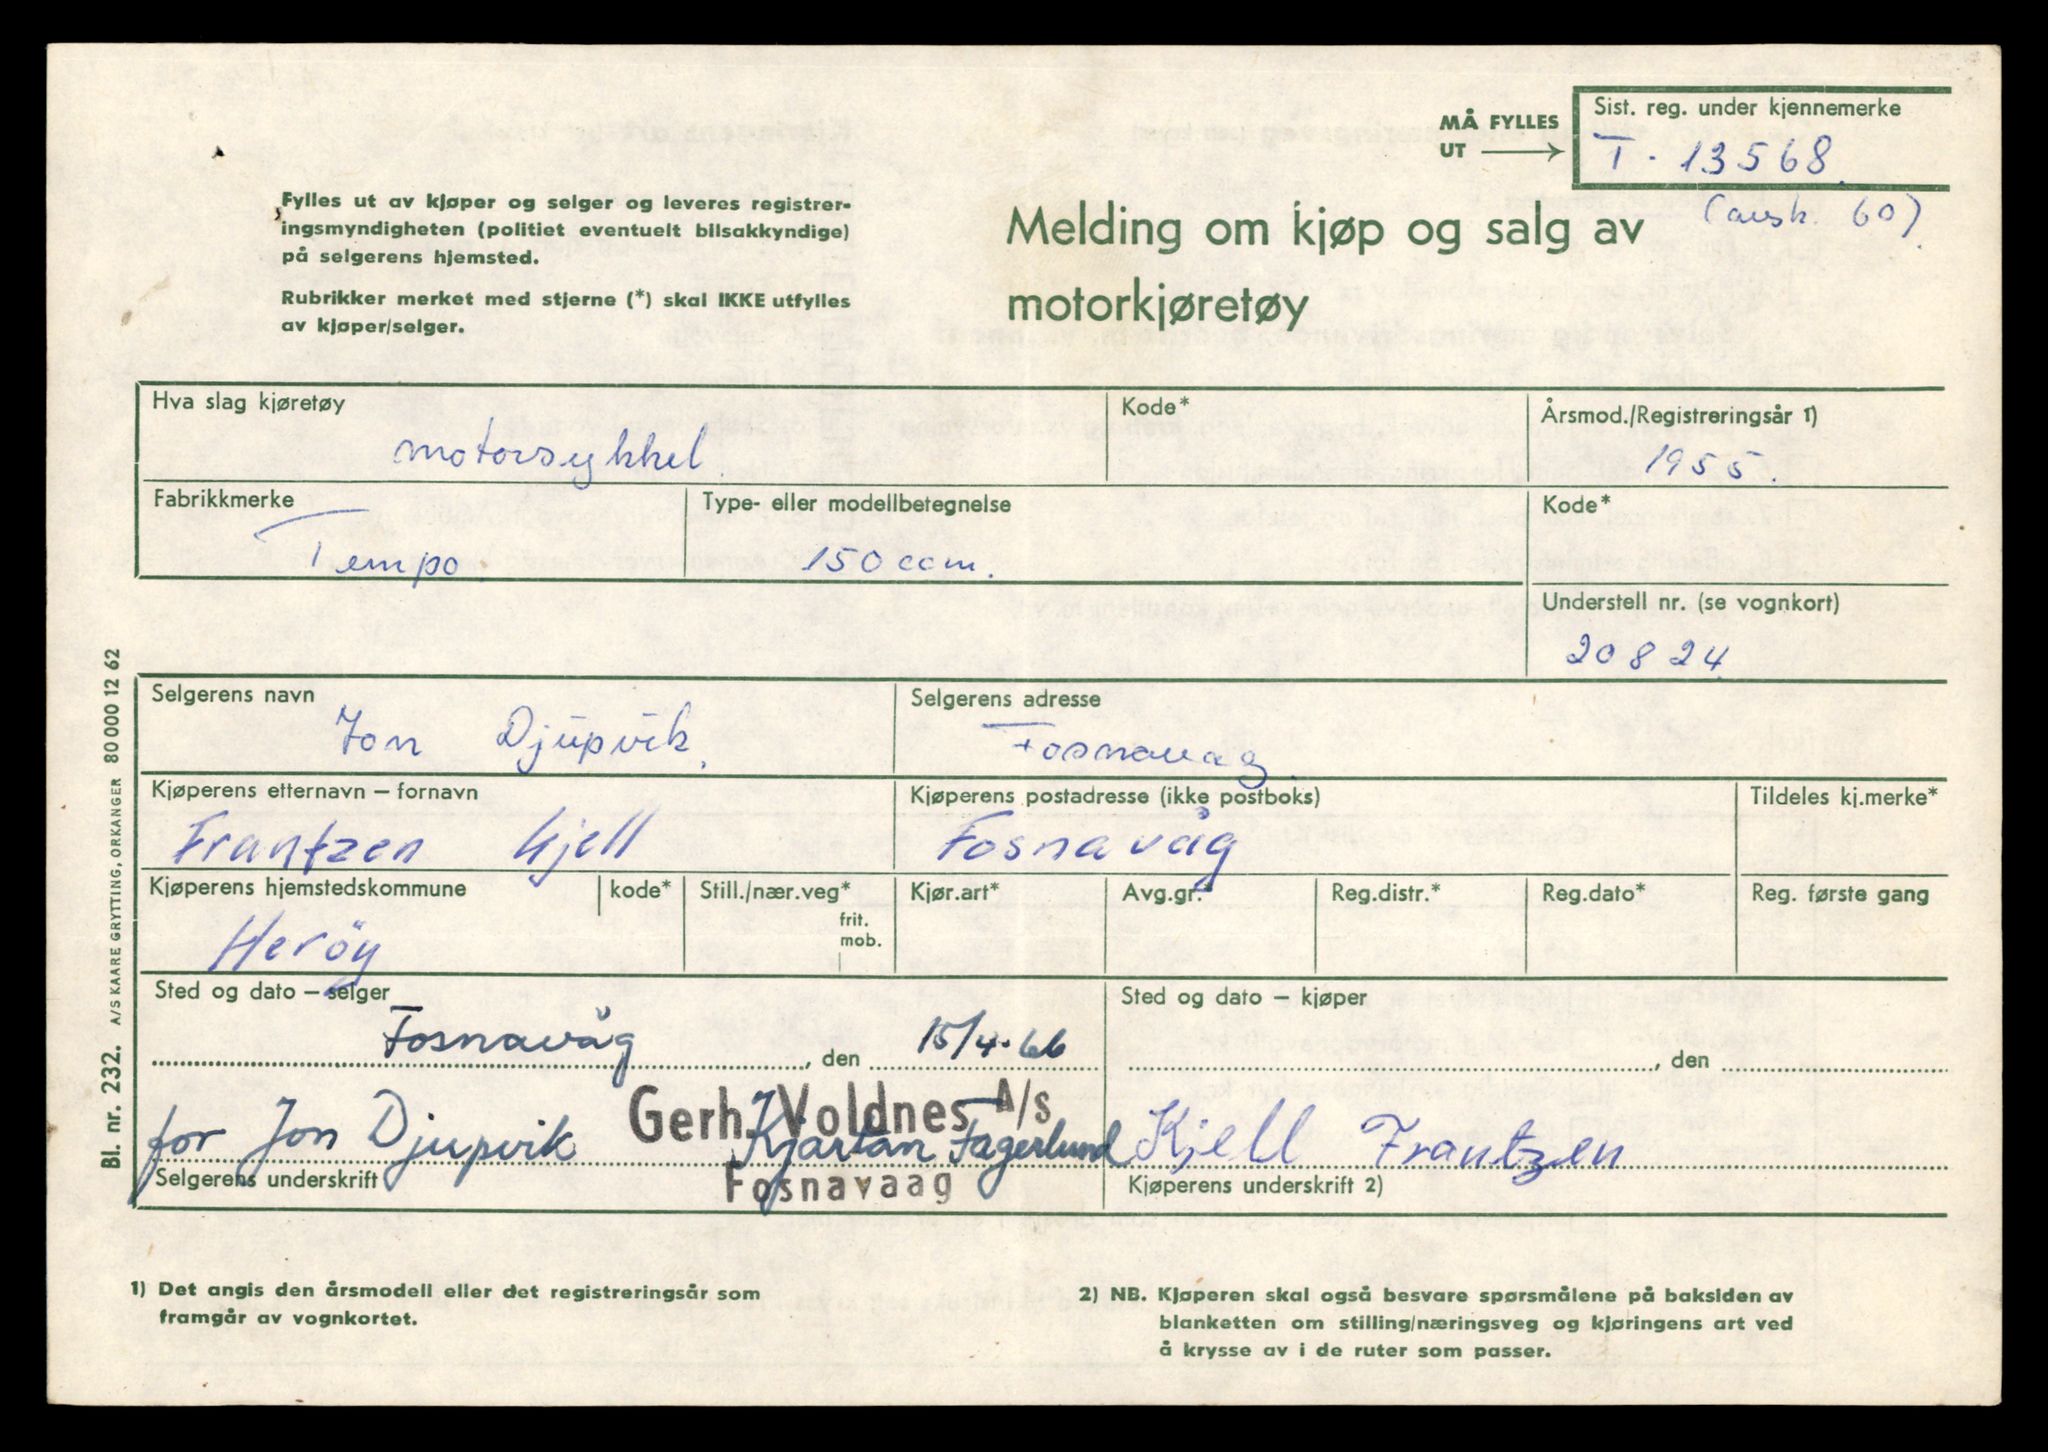 MÅ FYLLES
UT
Sist. reg. under kjennemerke
T - 13568.
(avsk. 60).
Fylles ut av kjøper og selger og leveres registrer-
ingsmyndigheten (politiet eventuelt bilsakkyndige)
på selgerens hjemsted.
Rubrikker merket med stjerne (*) skal IKKE utfylles
av kjøper/selger.
Melding om kjøp og salg av
motorkjøretøy
Hva slag kjøretøy
motorsykkel.
Kode*
Årsmod./Registreringsår 1)
1955.
Fabrikkmerke
Tempo.
Type- eller modellbetegnelse
150 ccm.
Kode*
Understell nr. (se vognkort)
20824.
Selgerens navn
Jon Djupvik.
Selgerens adresse
Fosnavag.
Kjøperens etternavn – fornavn
Frantzen Kjell
Kjøperens postadresse (ikke postboks)
Fosnavåg
Tildeles kj.merke*
Kjøperens hjemstedskommune
Herøy
kode*
Still./nær.veg*
frit.
mob.
Kjør.art*
Avg.gr.*
Reg.distr.*
Reg.dato*
Reg. første gang
Sted og dato – selger
Fosnavåg, den 15/4-66
Sted og dato – kjøper
, den
Gerh. Voldnes A/s
for Jon Djupvik Kjartan Fagerlund
Fosnavaag
Selgerens underskrift
Kjell Frantzen
Kjøperens underskrift 2)
1) Det angis den årsmodell eller det registreringsår som
framgår av vognkortet.
2) NB. Kjøperen skal også besvare spørsmålene på baksiden av
blanketten om stilling/næringsveg og kjøringens art ved
å krysse av i de ruter som passer.
Bl. nr. 232. A/S KAARE GRYTTING, ORKANGER 80 000 12 62